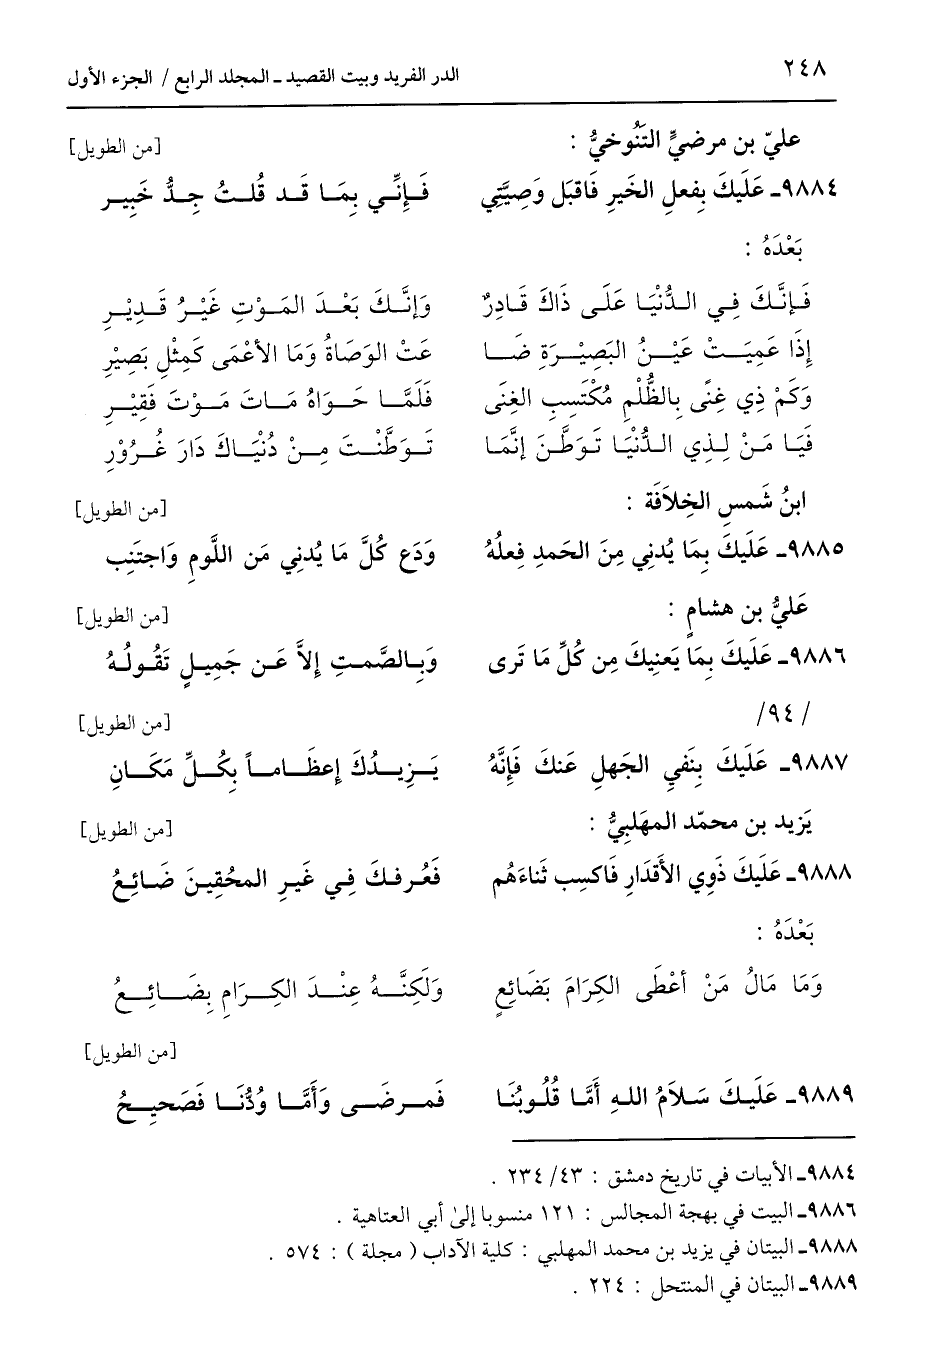 ٢٤٨ الدر الفريد وبيت القصيد ـ المجلد الرابع / الجزء الأول
عليّ بن مرضيٍّ التَّنُوخيُّ : [من الطويل]
٩٨٨٤ـ عَلَيكَ بِفعلِ الخَيرِ فَاقبَل وَصِيَّتِي فَإِنِّي بِمَا قَد قُلتُ جِدُّ خَبِيرِ
بَعْدَهُ :
فَإِنَّكَ فِي الدُّنْيَا عَلَى ذَاكَ قَادِرٌ وَإِنَّكَ بَعْدَ المَوْتِ غَيْرُ قَدِيْرِ
إِذَا عَمِيَتْ عَيْنُ البَصِيْرَةِ ضَا عَتْ الوَصَاةُ وَمَا الأعْمَى كَمِثْلِ بَصِيْرِ
وَكَمْ ذِي غِنًى بِالظُّلْمِ مُكْتَسِبِ الغِنَى فَلَمَّا حَوَاهُ مَاتَ مَوْتَ فَقِيْرِ
فَيَا مَنْ لِذِي الدُّنْيَا تَوَطَّنَ إنَّمَا تَوَطَّنْتَ مِنْ دُنْيَاكَ دَارَ غُرُوْرِ
ابنُ شَمسِ الخِلاَفَة : [من الطويل]
٩٨٨٥ـ عَلَيكَ بِمَا يُدنِي مِنَ الحَمدِ فِعلُهُ وَدَع كُلَّ مَا يُدنِي مَن اللَّومِ وَاجتَنِبِ
عَليُّ بن هشامٍ : [من الطويل]
٩٨٨٦ـ عَلَيكَ بِمَا يَعنِيكَ مِن كُلِّ مَا تَرى وَبِالصَّمتِ إِلاَّ عَن جَمِيلٍ تَقُولُهُ
/٩٤/ [من الطويل]
٩٨٨٧ـ عَلَيكَ بِنَفيِ الجَهلِ عَنكَ فَإِنَّهُ يَزِيدُكَ إِعظَاماً بِكُلِّ مَكَانِ
يَزيد بن محمّد المهَلبِيُّ : [من الطويل]
٩٨٨٨ـ عَلَيكَ ذَوِي الأقدَارِ فَاكسِب ثَناءَهُم فَعُرفكَ فِي غَيرِ المحُقينَ ضَائِعُ
بَعْدَهُ :
وَمَا مَالُ مَنْ أعْطَى الكِرَامَ بَضَائِعٍ وَلَكِنَّهُ عِنْدَ الكِرَامِ بِضَائِعُ
[من الطويل]
٩٨٨٩ـ عَلَيكَ سَلاَمُ اللهِ أمَّا قُلُوبُنَا فَمرضَى وَأَمَّا وُدُّنَا فَصَحِيحُ
٩٨٨٤ـ الأبيات في تاريخ دمشق : ٤٣/ ٢٣٤ .
٩٨٨٦ـ البيت في بهجة المجالس : ١٢١ منسوبا إلىٰ أبي العتاهية .
٩٨٨٨ـ البيتان في يزيد بن محمد المهلبي : كلية الآداب ( مجلة ) : ٥٧٤ .
٩٨٨٩ـ البيتان في المنتحل : ٢٢٤ .